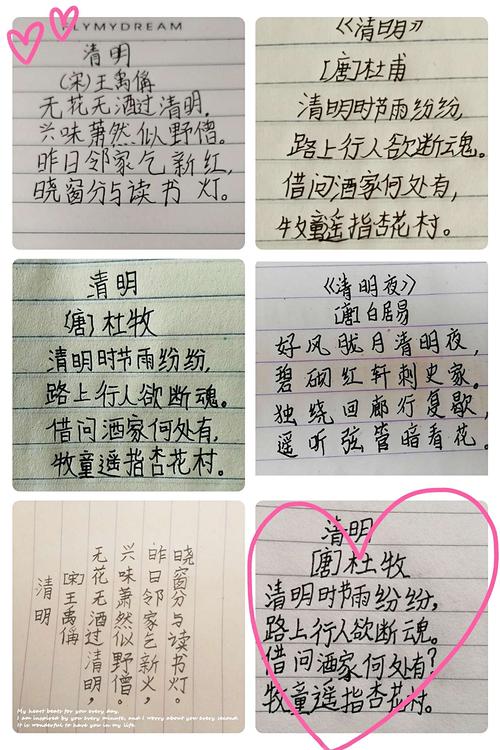 FLYMYDREAM
清明
(宋)王禹偁
无花无酒过清明,
兴味萧然似野僧。
昨日邻家乞新红,
晓窗分与读书灯。
《清明》
[唐]杜甫
清明时节雨纷纷,
路上行人欲断魂。
借问酒家何处有,
牧童遥指杏花村。
清明
(唐)杜牧
清明时节雨纷纷,
路上行人欲断魂。
借问酒家何处有,
牧童遥指杏花村。
《清明夜》
[唐]白居易
好风胧月清明夜,
碧砌红轩刺史家。
独绕回廊行复歇,
遥听弦管暗看花。
清明
[宋]王禹偁
无花无酒过清明,
兴味萧然似野僧。
昨日邻家乞新火,
晓窗分与读书灯。
My heart beats for you every day.
I am inspired by you every minute, and I worry about you every second.
It is wonderful to have you in my life.
清明
[唐]杜牧
清明时节雨纷纷,
路上行人欲断魂。
借问酒家何处有?
牧童遥指杏花村。